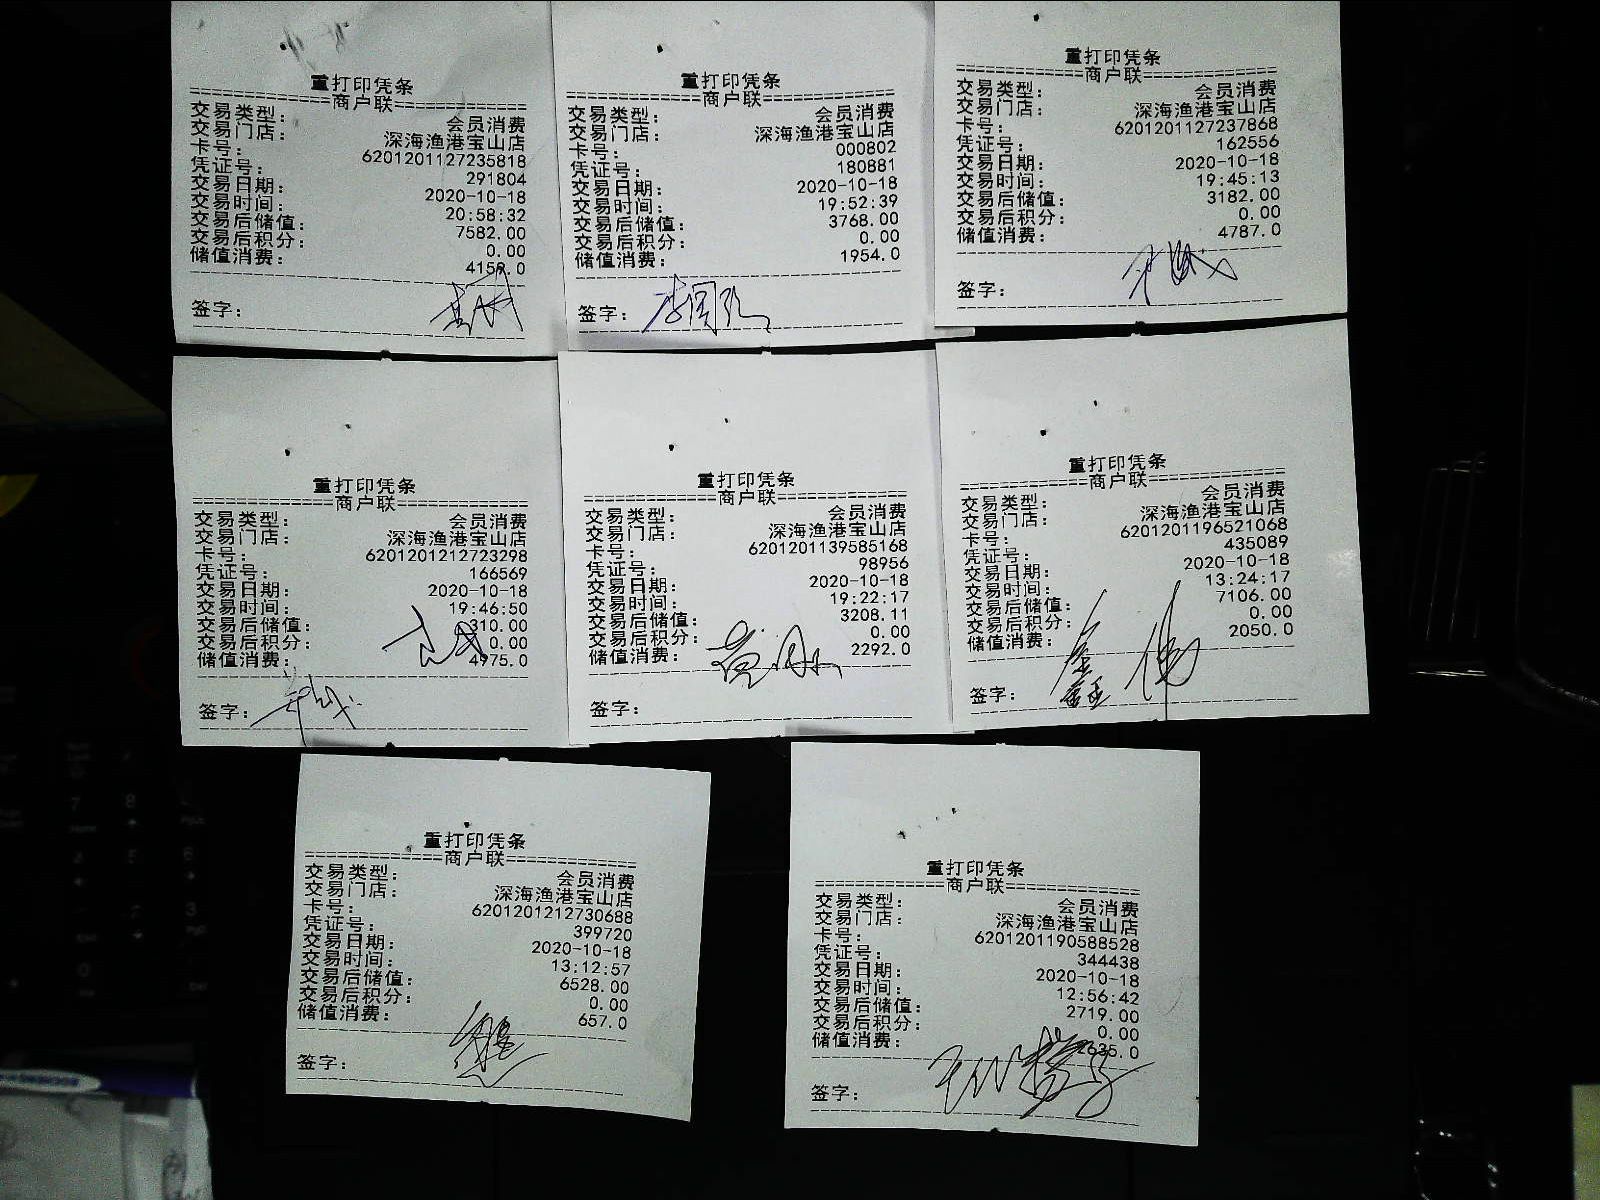 重打印凭条
商户联
交易类型： 会员消费
交易门店： 深海渔港宝山店
卡号： 6201201127235818
凭证号： 291804
交易日期： 2020-10-18
交易时间： 20:58:32
交易后储值： 7582.00
交易后积分： 0.00
储值消费：
签字：
重打印凭条
商户联
交易类型： 会员消费
交易门店： 深海渔港宝山店
卡号： 000802
凭证号： 180881
交易日期： 2020-10-18
交易时间： 19:52:39
交易后储值： 3768.00
交易后积分： 0.00
储值消费： 1954.0
签字： 李国弘
重打印凭条
商户联
交易类型： 会员消费
交易门店： 深海渔港宝山店
卡号： 6201201127237868
凭证号： 162556
交易日期： 2020-10-18
交易时间： 19:45:13
交易后储值： 3182.00
交易后积分： 0.00
储值消费： 4787.0
签字：
重打印凭条
商户联
交易类型： 会员消费
交易门店： 深海渔港宝山店
卡号： 6201201212723298
凭证号： 166569
交易日期： 2020-10-18
交易时间： 19:46:50
交易后储值： 310.00
交易后积分： 0.00
储值消费： 4975.0
签字：
重打印凭条
商户联
交易类型： 会员消费
交易门店： 深海渔港宝山店
卡号： 6201201139585168
凭证号： 98956
交易日期： 2020-10-18
交易时间： 19:22:17
交易后储值： 3208.11
交易后积分： 0.00
储值消费： 2292.0
签字：
重打印凭条
商户联
交易类型： 会员消费
交易门店： 深海渔港宝山店
卡号： 6201201196521068
凭证号： 435089
交易日期： 2020-10-18
交易时间： 13:24:17
交易后储值： 7106.00
交易后积分： 0.00
储值消费： 2050.0
签字：
重打印凭条
商户联
交易类型： 会员消费
交易门店： 深海渔港宝山店
卡号： 6201201212730688
凭证号： 399720
交易日期： 2020-10-18
交易时间： 13:12:57
交易后储值： 6528.00
交易后积分： 0.00
储值消费： 657.0
签字：
重打印凭条
商户联
交易类型： 会员消费
交易门店： 深海渔港宝山店
卡号： 6201201190588528
凭证号： 344438
交易日期： 2020-10-18
交易时间： 12:56:42
交易后储值： 2719.00
交易后积分： 0.00
储值消费：
签字：